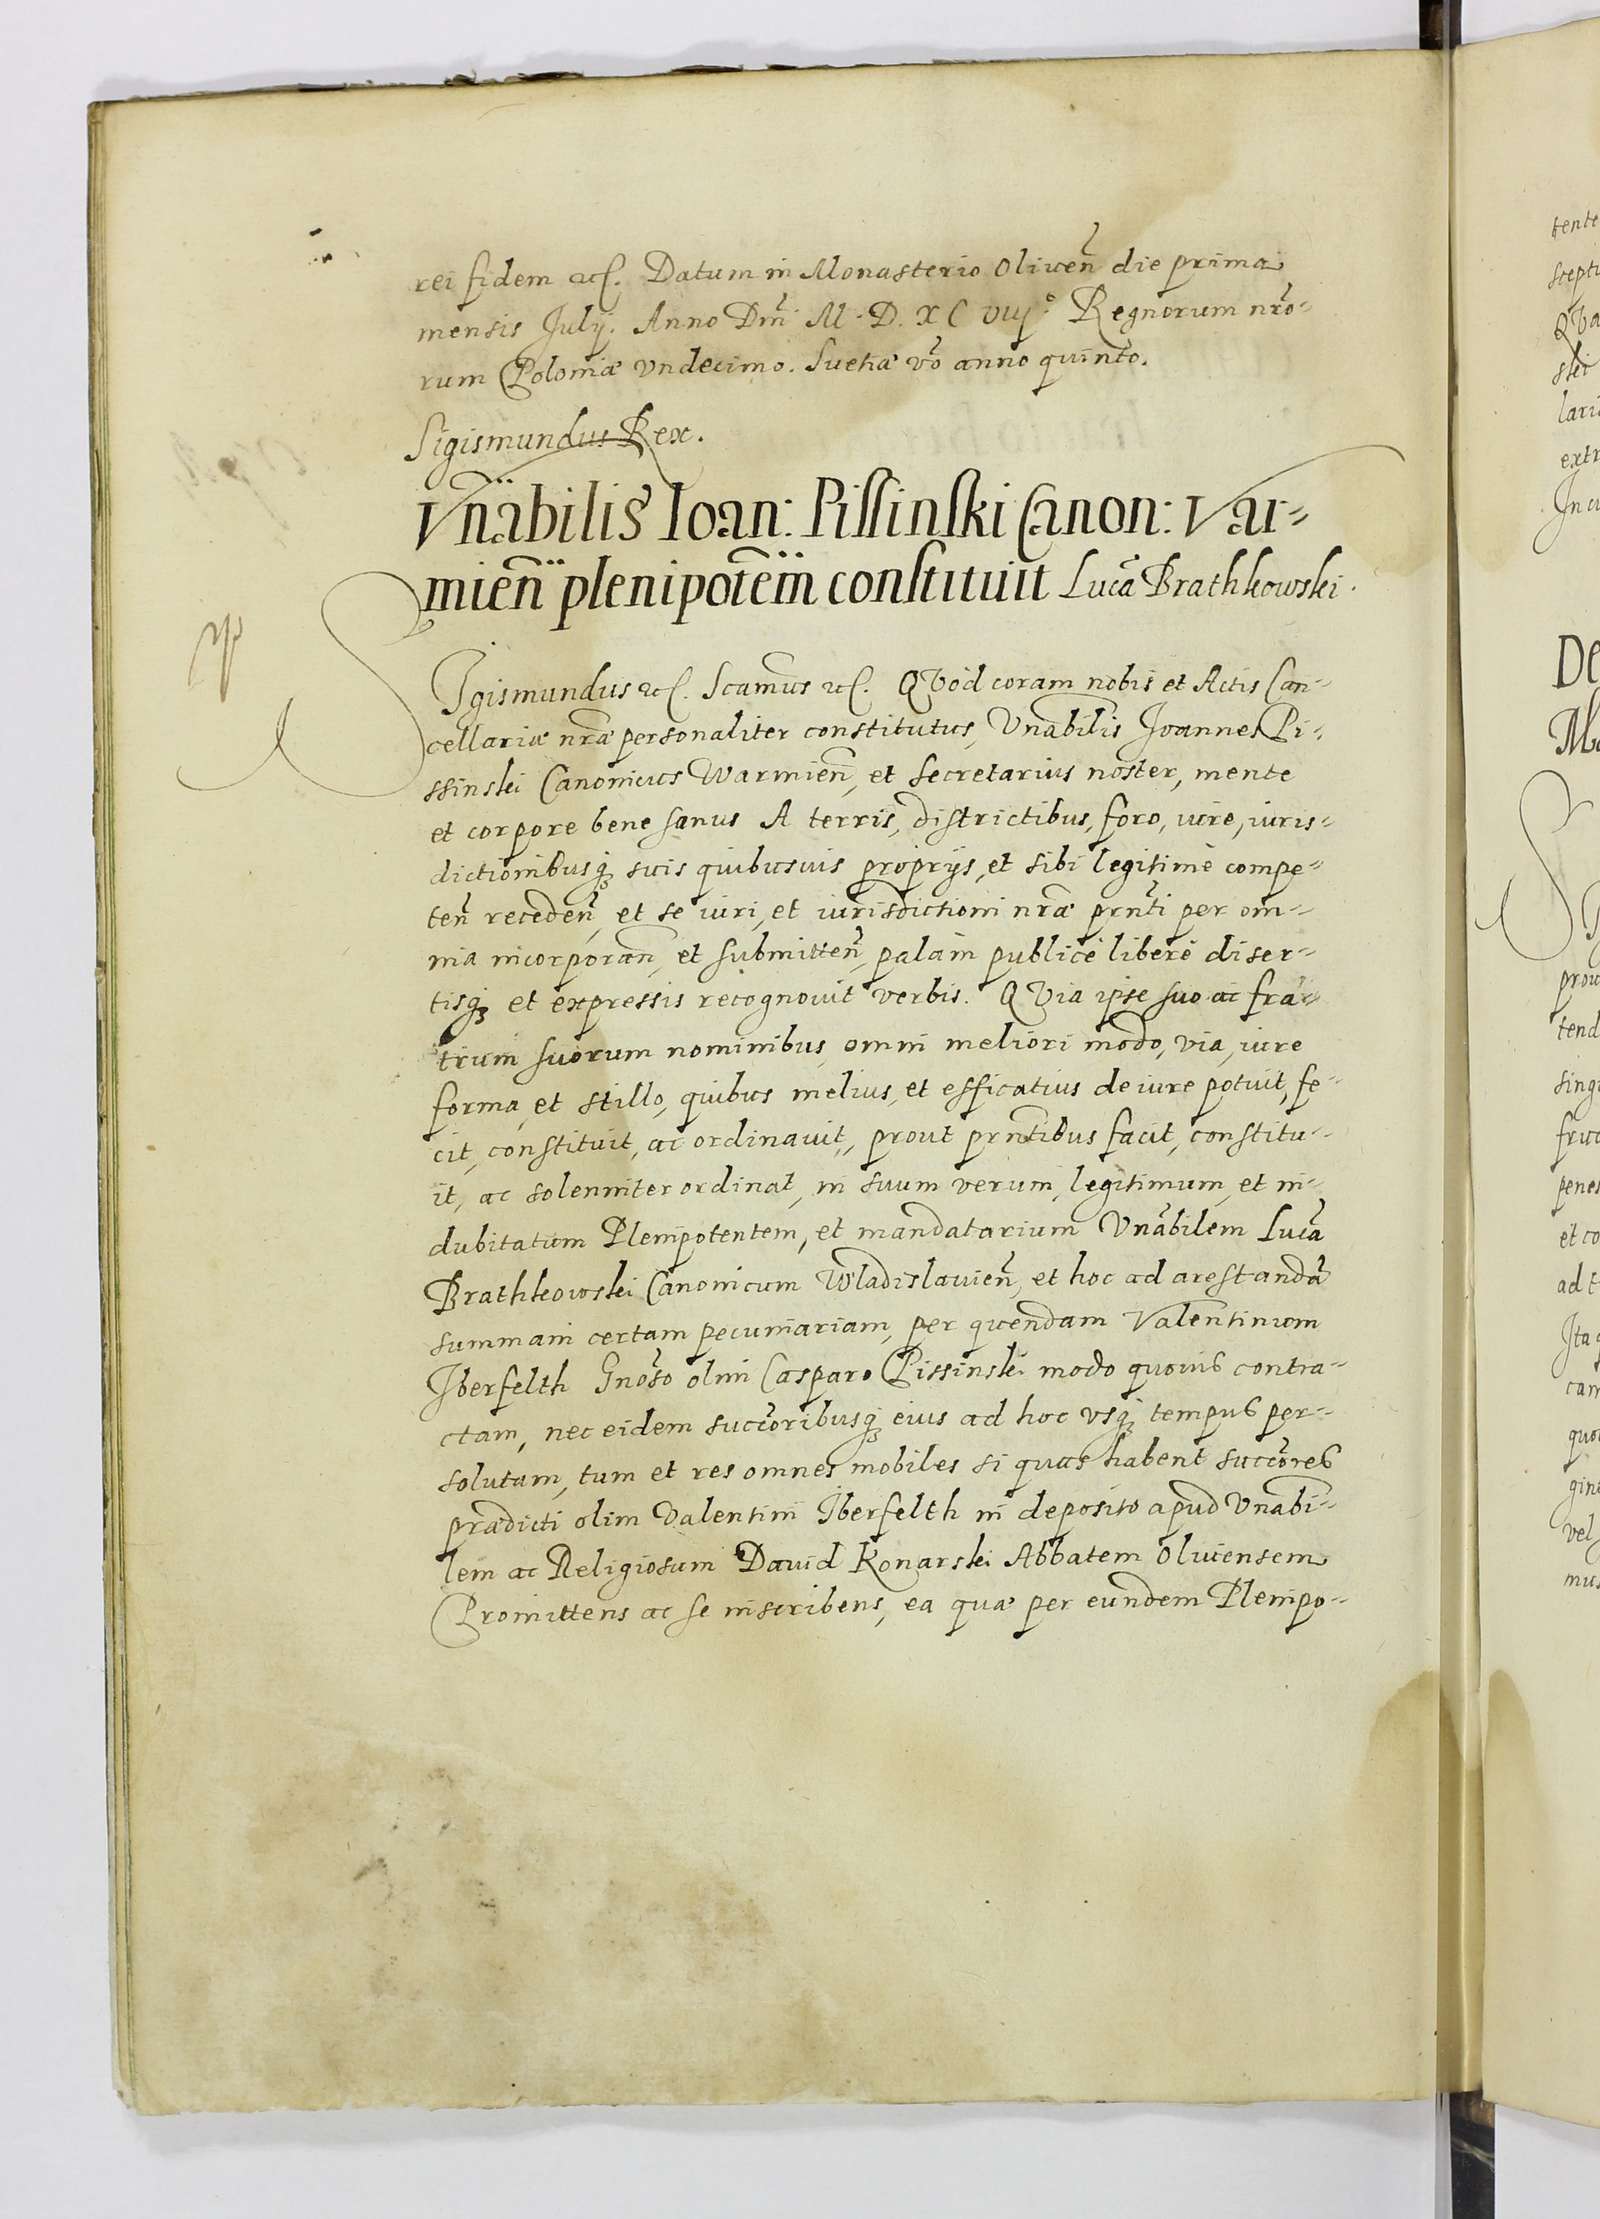 rei fidem etc. Datum in Monasterio Oliuen̄ die prima
mensis July. Anno Dm̄ M. D. XC viij° Regnorum nr̄o-
rum Poloniæ vndecimo. Suetiæ vō anno quinto.
Sigismundus Rex.
Vn̄abilis Ioan: Pissinski Canon: Var-
mien̄ plenipotēm constituit Lucā Brathkowski.
SIgismundus etc. Scamus etc. QVod coram nobis et Actis Can-
cellariæ nr̄æ personaliter constitutus, Vn̄abilis Joannes Pi-
ssinski Canonicus Warmien̄, et Secretarius noster, mente
et corpore bene sanus A terris, districtibus, foro, iure, iuris-
dictionibusq̨ suis quibusuis proprijs, et sibi legitimè compe-
ten̄ receden̄, et se iuri, et iurisdictioni nr̄æ prn̄ti per om-
nia incorporan̄, et submitten̄, palam publicè liberè diser-
tisq̨ et expressis recognouit verbis. QVia ipse suo ac fra-
trum suorum nominibus, omni meliori modo, via, iure
forma, et stillo, quibus melius, et efficatius de iure potuit, fe-
cit, constituit, ac ordinauit, prout prn̄tibus facit, constitu-
it, ac solenniter ordinat, in suum verum, legitimum, et in-
dubitatum Plenipotentem, et mandatarium Vn̄abilem Lucā
Brathkowski Canonicum Wladislauien̄, et hoc ad arestandā
summam certam pecuniariam, per quendam Valentinum
Iberfelth Gn̄oso olim Casparo Pissinski modo quouis contra-
ctam, nec eidem succ̄oribusq̨ eius ad hoc vsq̨ tempus per-
solutam, tum et res omnes mobiles si quas habent succ̄ores
prædicti olim Valentini Iberfelth in deposito apud Vn̄abi-
lem ac Religiosum Dauid Konarski Abbatem Oliuensem
Promittens ac se inscribens, ea quæ per eundem Plenipo-